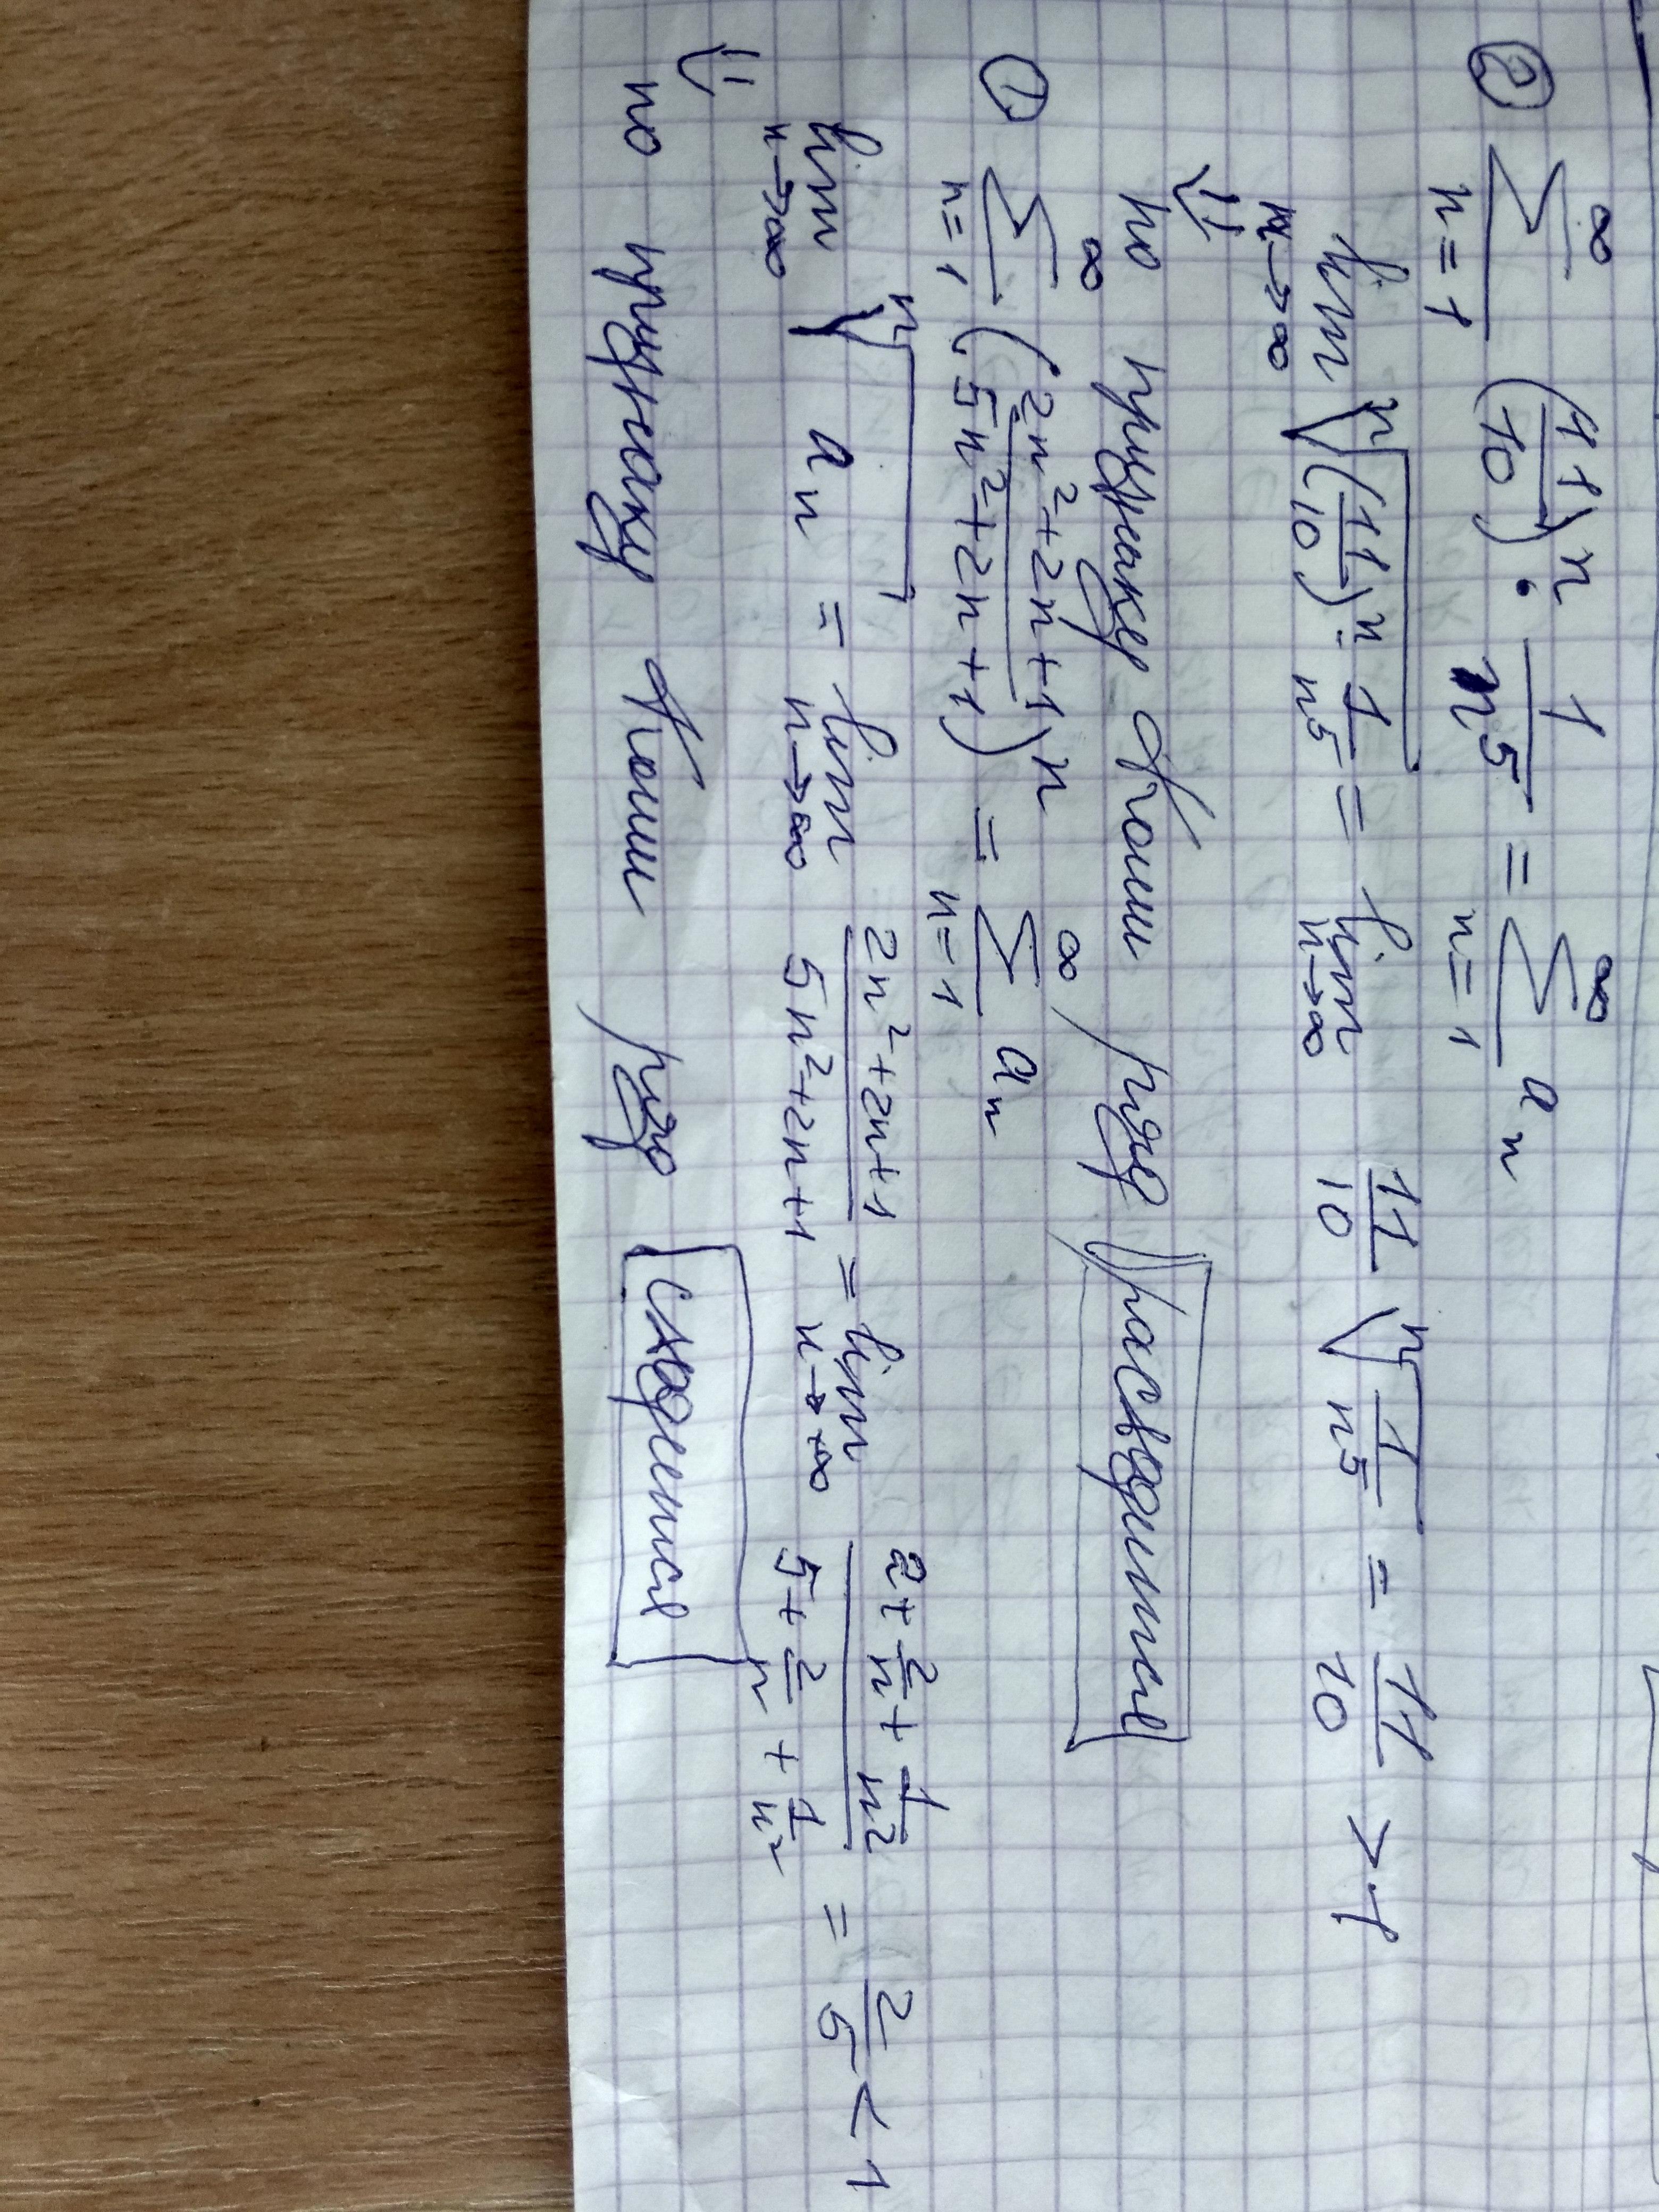 ② ∑_{n=1}^{∞} (11/10)^n · 1/n^5 = ∑_{n=1}^{∞} a_n
lim_{n→∞} ⁿ√((11/10)^n · 1/n^5) = lim_{n→∞} 11/10 ⁿ√(1/n^5) = 11/10 > 1
⇓
по признаку Коши ряд расходится
① ∑_{n=1}^{∞} ((2n²+2n+1)/(5n²+2n+1))^n = ∑_{n=1}^{∞} a_n
lim_{n→∞} ⁿ√(a_n) = lim_{n→∞} (2n²+2n+1)/(5n²+2n+1) = lim_{n→+∞} (2+2/n+1/n²)/(5+2/n+1/n²) = 2/5 < 1
⇓
по признаку Коши ряд сходится